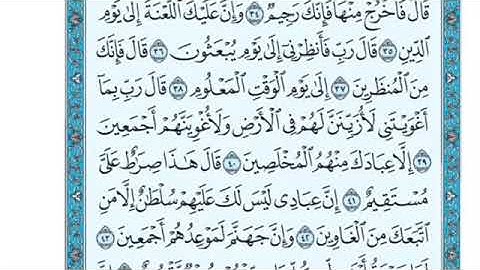 قَالَ فَٱخْرُجْ مِنْهَا فَإِنَّكَ رَجِيمٌ ٣٤ وَإِنَّ عَلَيْكَ ٱللَّعْنَةَ إِلَىٰ يَوْمِ
ٱلدِّينِ ٣٥ قَالَ رَبِّ فَأَنظِرْنِىٓ إِلَىٰ يَوْمِ يُبْعَثُونَ ٣٦ قَالَ فَإِنَّكَ
مِنَ ٱلْمُنظَرِينَ ٣٧ إِلَىٰ يَوْمِ ٱلْوَقْتِ ٱلْمَعْلُومِ ٣٨ قَالَ رَبِّ بِمَآ
أَغْوَيْتَنِى لَأُزَيِّنَنَّ لَهُمْ فِى ٱلْأَرْضِ وَلَأُغْوِيَنَّهُمْ أَجْمَعِينَ
٣٩ إِلَّا عِبَادَكَ مِنْهُمُ ٱلْمُخْلَصِينَ ٤٠ قَالَ هَٰذَا صِرَٰطٌ عَلَىَّ
مُسْتَقِيمٌ ٤١ إِنَّ عِبَادِى لَيْسَ لَكَ عَلَيْهِمْ سُلْطَٰنٌ إِلَّا مَنِ
ٱتَّبَعَكَ مِنَ ٱلْغَاوِينَ ٤٢ وَإِنَّ جَهَنَّمَ لَمَوْعِدُهُمْ أَجْمَعِينَ ٤٣